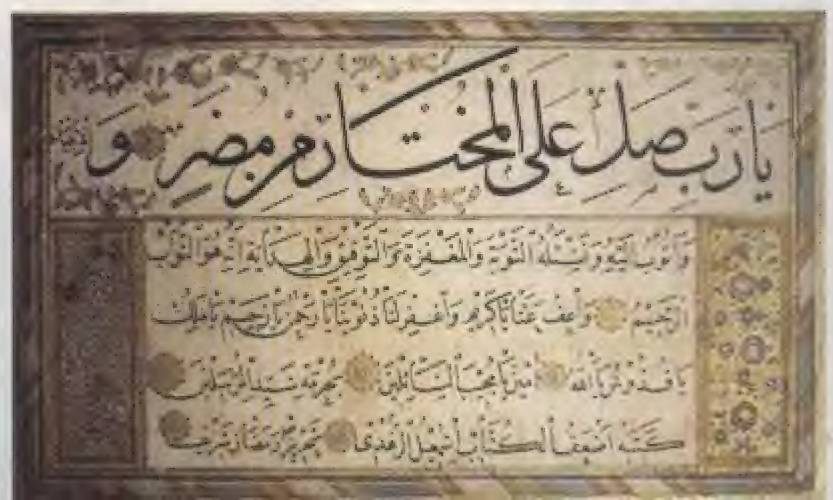 يَا رَبِّ صَلِّ عَلَى الْمُخْتَارِ مِنْ مُضَرٍ وَ
وَأَتُوبُ إِلَيْهِ وَنَسْئَلُهُ التَّوْبَةَ وَالْمَغْفِرَةَ وَالتَّوْفِيقَ وَالْهِدَايَةَ إِنَّهُ هُوَ التَّوَّابُ
الرَّحِيمُ وَاعْفُ عَنَّا يَا كَرِيمُ وَاغْفِرْ لَنَا ذُنُوبَنَا يَا رَحْمٰنُ يَا رَحِيمُ يَا مَلِكُ
يَا قُدُّوسُ يَا اَللّٰهُ آمِينَ يَا مُجِيبَ السَّائِلِينَ بِحُرْمَةِ سَيِّدِ الْمُرْسَلِينَ
كَتَبَهُ اَضْعَفُ الْكُتَّابِ اِسْمٰعِيلُ الزُّهْدِى